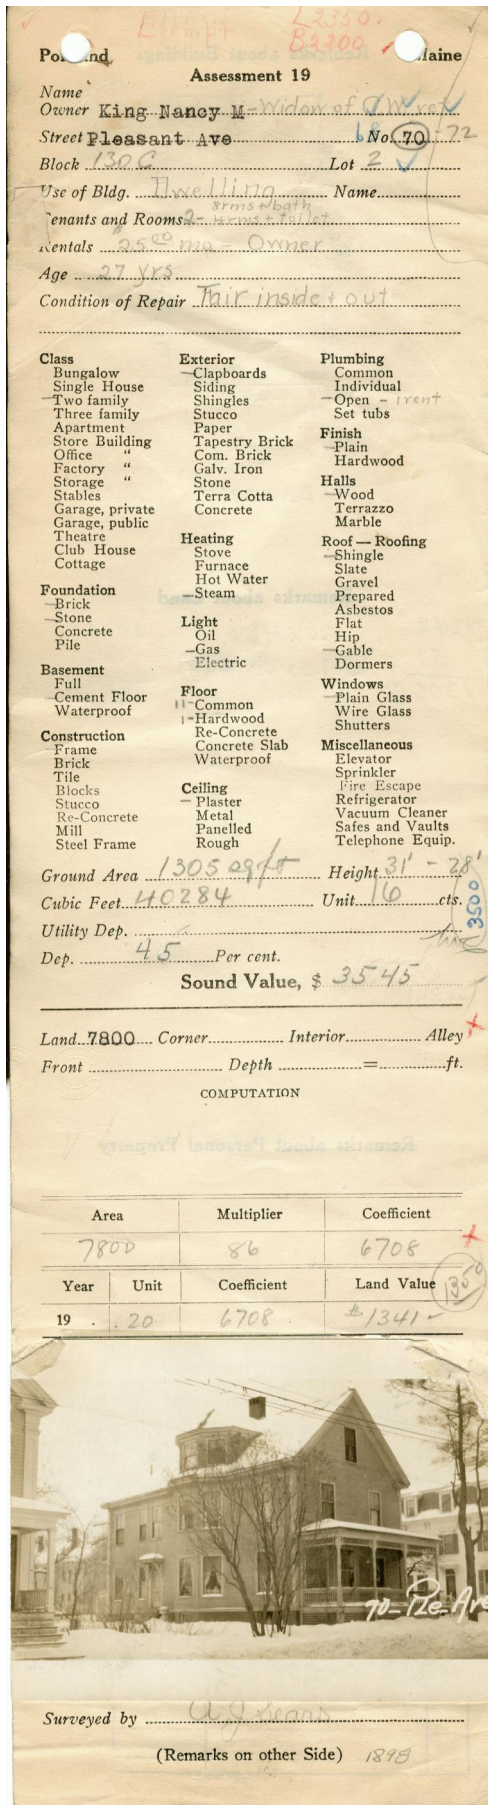 Exempt L2350.
B2200
Portland Maine
Assessment 19
Name
Owner King Nancy M - Widow of C W ret
Street Pleasant Ave 68 No. 70 -72
Block 130 C Lot 2
Use of Bldg. Dwelling Name
8rms + bath
Tenants and Rooms 2- 4rms + toilet
Rentals $25 00 mo - Owner
Age 27 yrs
Condition of Repair Fair inside + out
Class
Bungalow
Single House
Two family
Three family
Apartment
Store Building
Office "
Factory "
Storage "
Stables
Garage, private
Garage, public
Theatre
Club House
Cottage
Foundation
Brick
Stone
Concrete
Pile
Basement
Full
Cement Floor
Waterproof
Construction
Frame
Brick
Tile
Blocks
Stucco
Re-Concrete
Mill
Steel Frame
Exterior
Clapboards
Siding
Shingles
Stucco
Paper
Tapestry Brick
Com. Brick
Galv. Iron
Stone
Terra Cotta
Concrete
Heating
Stove
Furnace
Hot Water
Steam
Light
Oil
Gas
Electric
Floor
11- Common
1- Hardwood
Re-Concrete
Concrete Slab
Waterproof
Ceiling
Plaster
Metal
Panelled
Rough
Plumbing
Common
Individual
Open - 1 rent
Set tubs
Finish
Plain
Hardwood
Halls
Wood
Terrazzo
Marble
Roof — Roofing
Shingle
Slate
Gravel
Prepared
Asbestos
Flat
Hip
Gable
Dormers
Windows
Plain Glass
Wire Glass
Shutters
Miscellaneous
Elevator
Sprinkler
Fire Escape
Refrigerator
Vacuum Cleaner
Safes and Vaults
Telephone Equip.
Ground Area 1305 sq ft Height 31' - 28'
Cubic Feet 40284 Unit 16 cts.
3500
Utility Dep.
Dep. 45 Per cent.
Sound Value, $ 3545
Land 7800 Corner Interior Alley
Front Depth = ft.
COMPUTATION
Area Multiplier Coefficient
7800 86 6708
Year Unit Coefficient Land Value 1350
19 . .20 6708 $1341-
70-Ple-Ave
Surveyed by A J Sears
(Remarks on other Side) 1898